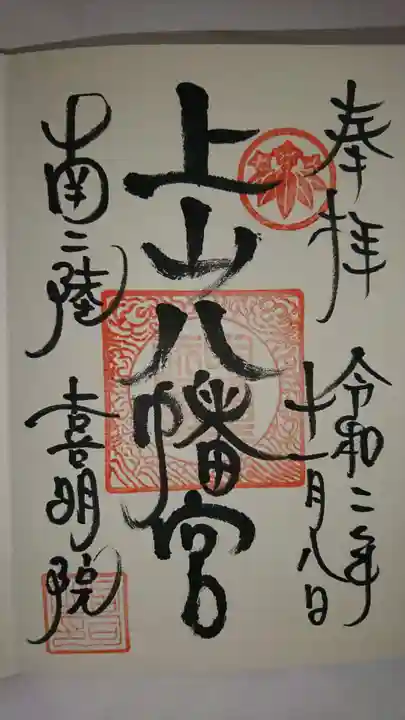 奉拝
令和二年
十一月八日
上山八幡宮
南三陸
喜明院